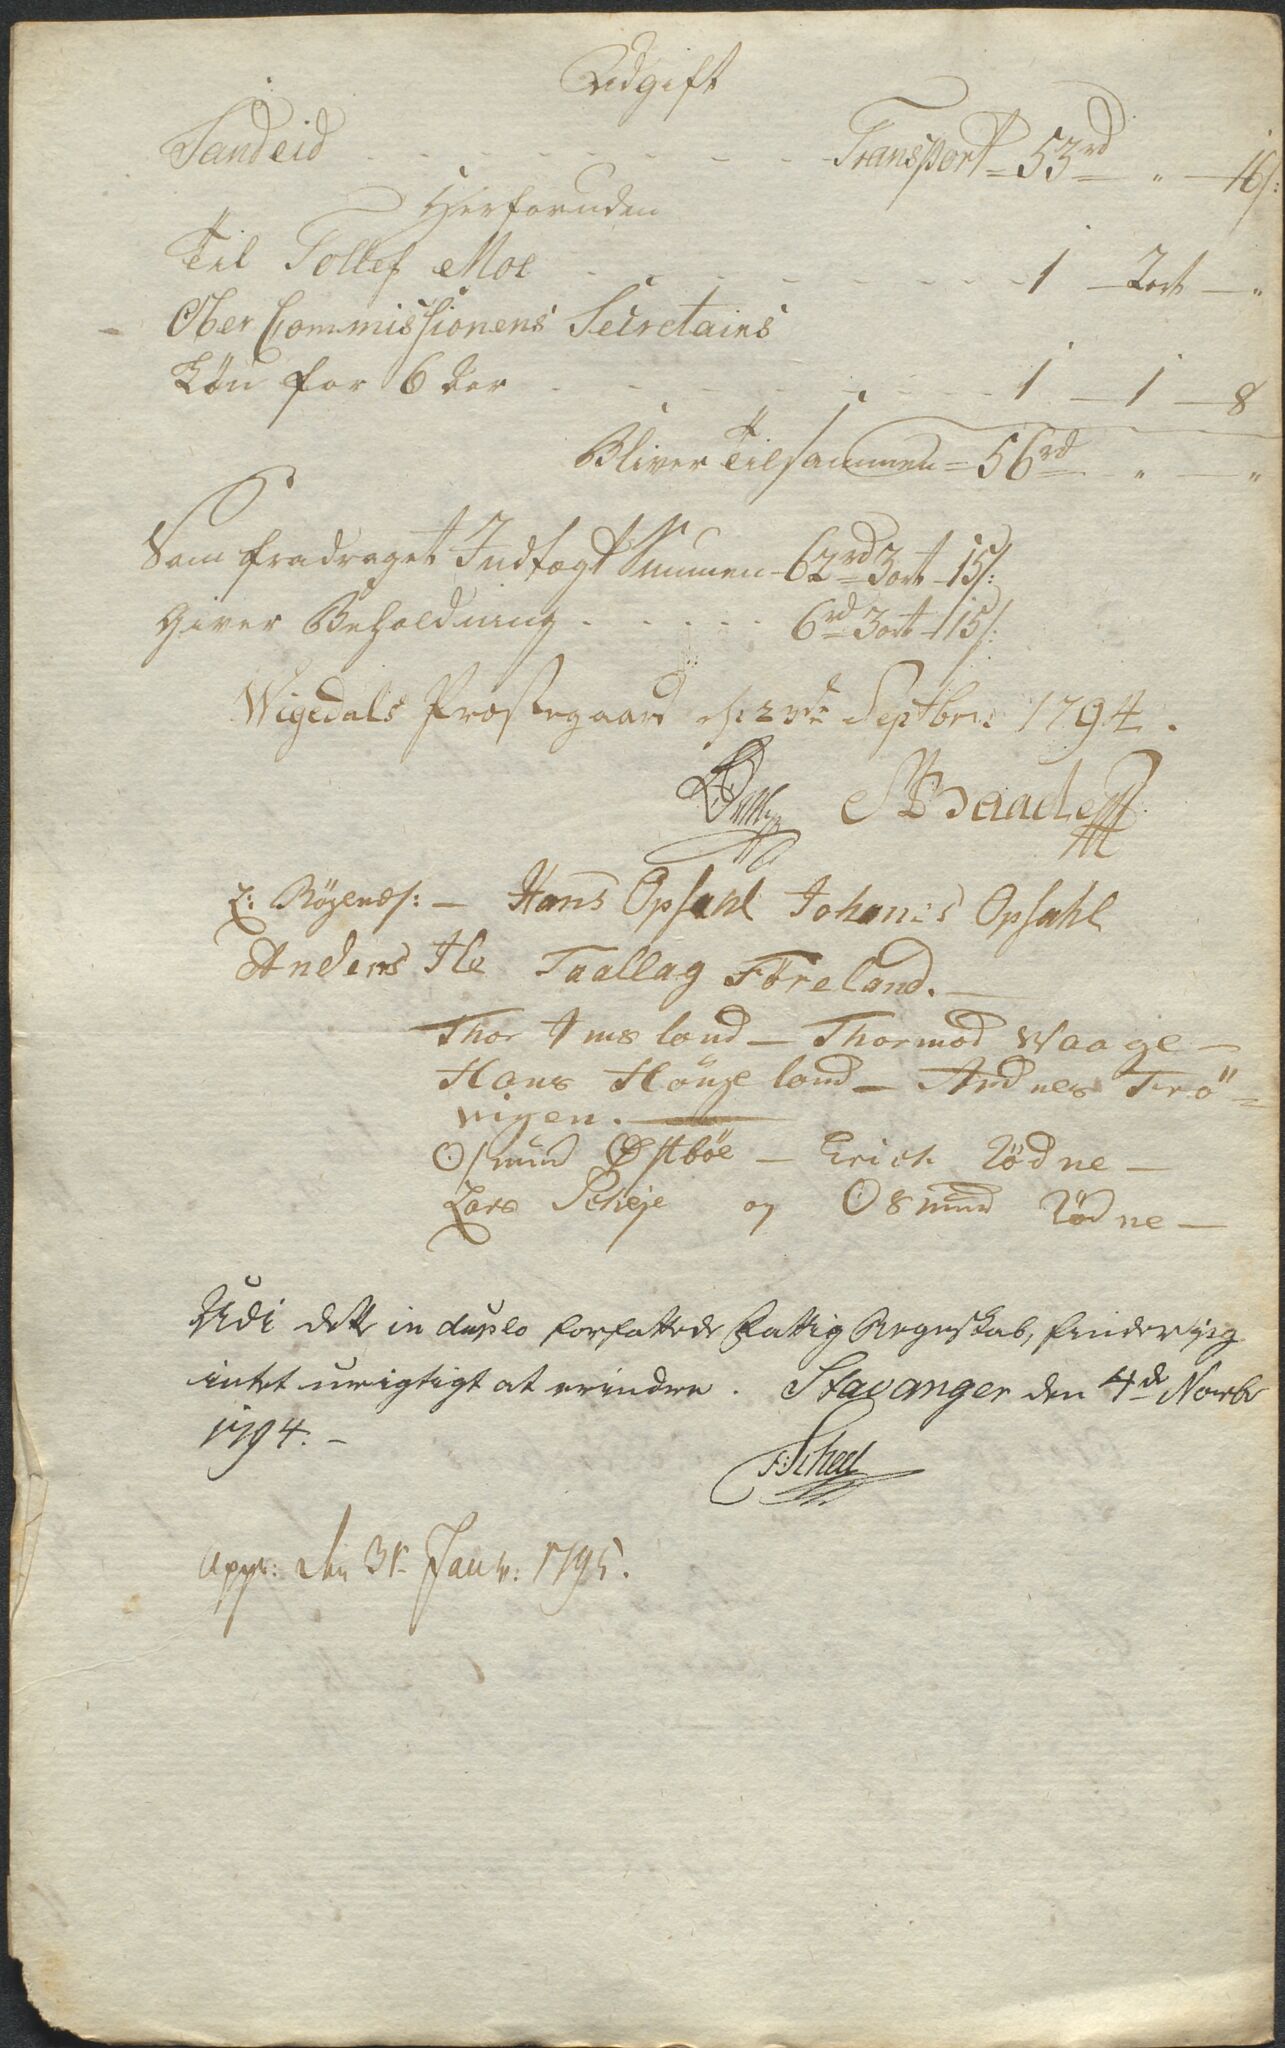 Udgift
Sandeid - - - - - - - - Transport = 53 rd " — 16 s:
Herforuden
Til Tollef Moe - - - - - - - - - 1 — 2 ort — "
Ober Commissionens Secretairs
Løn for 6 - - - - - - - - 1 — 1 — 8
Bliver Tilsammen = 56 rd " — "
Som fradraget Indtægt Summen - 62 rd 3 ort - 15 s:
Giver Beholdning - - - - - 6 rd 3 ort - 15 s:
Wigedals Præstegaard Septbr: 1794.
Baade
— Hans Opsahl Johanes Opsahl
Anders He Taallag Föreland. —
Thor Imsland — Thormod Waage —
Hans Höugeland — Andnes Frö=
vigen. —
Osmund Østböe — Erich Rödne —
Lars Scheje og Osmund Rödne —
Udi dette in duplo forfattede Fattig Regnskab, finder jeg
intet urigtigt at erindre. Stavanger den 4de Novbr
1794. —
Scheel
Appr: den 31. Janv: 1795.